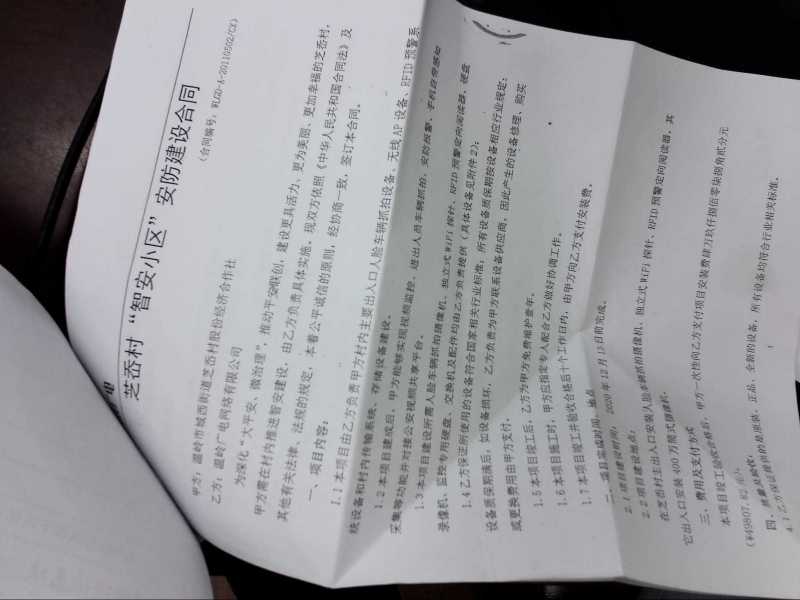 芝岙村“智安小区”安防建设合同
（合同编号：WLGD-A-20110502/CX）
甲方：温岭市城西街道芝岙村股份经济合作社
乙方：温岭广电网络有限公司
为深化“大平安、微治理”，推动平安联创，建设更具活力、更为美丽、更加幸福的芝岙村，
甲方需在村内推进智安建设，由乙方负责具体实施。现双方依照《中华人民共和国合同法》及
其他有关法律、法规的规定，本着公平诚信的原则，经协商一致，签订本合同。
一、项目内容：
1.1 本项目由乙方负责甲方村内主要出入口人脸车辆抓拍设备、无线AP设备、RFID预警系
统设备和村内传输系统、存储设备建设。
1.2 本项目建成后，甲方能够实现视频监控、进出人员车辆抓拍、安防报警、手机自常感知
采集等功能并对接公安视频共享平台。
1.3 本项目建设所需人脸车辆抓拍摄像机、独立式WiFi探针、RFID预警定向阅读器、硬盘
录像机、监控专用硬盘、交换机及配件均由乙方负责提供（具体设备见附件2）；
1.4 乙方保证所使用的设备符合国家相关行业标准；所有设备质保期按设备相应行业规定；
设备质保期满后，如设备损坏，乙方负责为甲方联系设备供应商，因此产生的设备修理、购买
或更换费用由甲方支付。
1.5 本项目竣工后，乙方为甲方免费维护壹年。
1.6 本项目施工时，甲方应指定专人配合乙方做好协调工作。
1.7 本项目竣工并验收合格后十个工作日内，由甲方向乙方支付安装费。
二、项目完成时间、地点
2.1 项目建设时间：2020年12月15日前完成。
2.2 项目建设地点：
在芝岙村主出入口安装人脸车辆抓拍摄像机、独立式WiFi探针、RFID预警定向阅读器，其
它出入口安装400万筒式摄像机。
三、费用及支付方式
本项目竣工验收合格后，甲方一次性向乙方支付项目安装费肆万玖仟捌佰零柒捌角贰分元
（¥49807.82元）；
四、质量及验收：
4.1 乙方保证提供的是原装、正品、全新的设备，所有设备均符合行业相关标准。